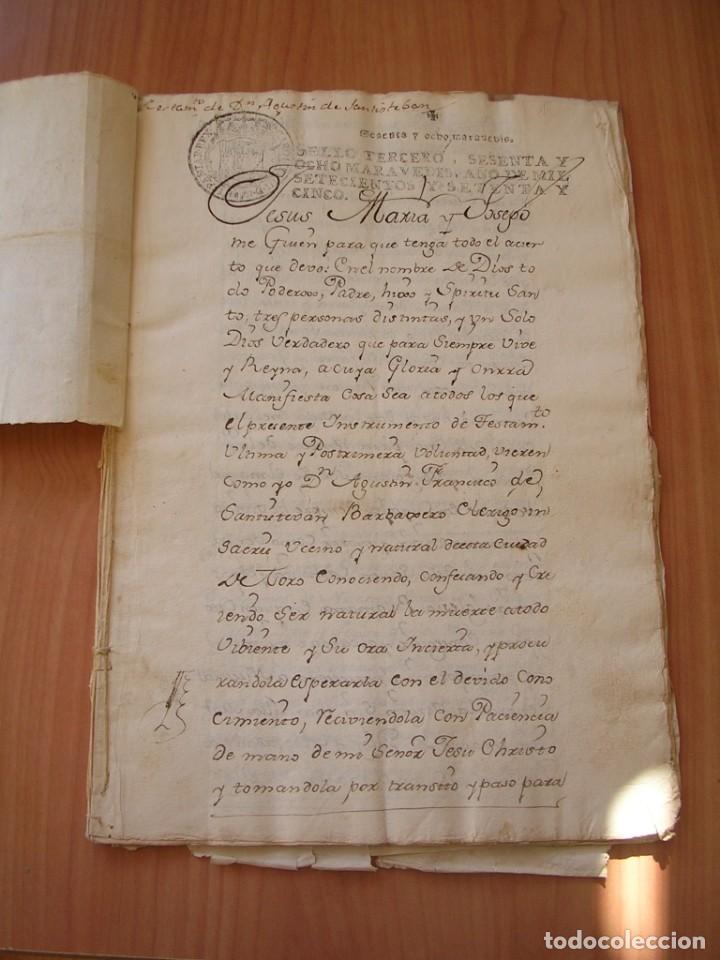 Testamto de Dn Agustin de Santisteban
Sesenta y ocho maravedis.
SELLO TERCERO, SESENTA Y
OCHO MARAVEDIS, AÑO DE MIL
SETECIENTOS Y SETENTA Y
CINCO.
Jesus Maria y Josepo
me Guien para que tenga todo el acier
to que devo: En el nombre de Dios to
do Poderoso, Padre, hixo y Spiritu San
to, tres personas distintas, y Vn Solo
Dios Verdadero que para Siempre Vive
y Reyna, a cuya Gloria y Onrra
Manifiesta Cosa Sea a todos los que
el presente Instrumento de Testamto
Vltima y Postrimera Voluntad, vieren
como yo Dn Agustin Francisco de
Santistevan Barbadero Clerigo in
sacris Vecino y natural de esta Ciudad
de Toro Conociendo, confesando y Cre
iendo Ser natural la muerte a todo
Vibiente y Su Ora Incierta, y procu
randola esperarla con el devido Cono
cimiento, Reciviendola con Paciencia
de mano de mi Señor Jesu Christo
y tomandola por transito y paso para
todocoleccion